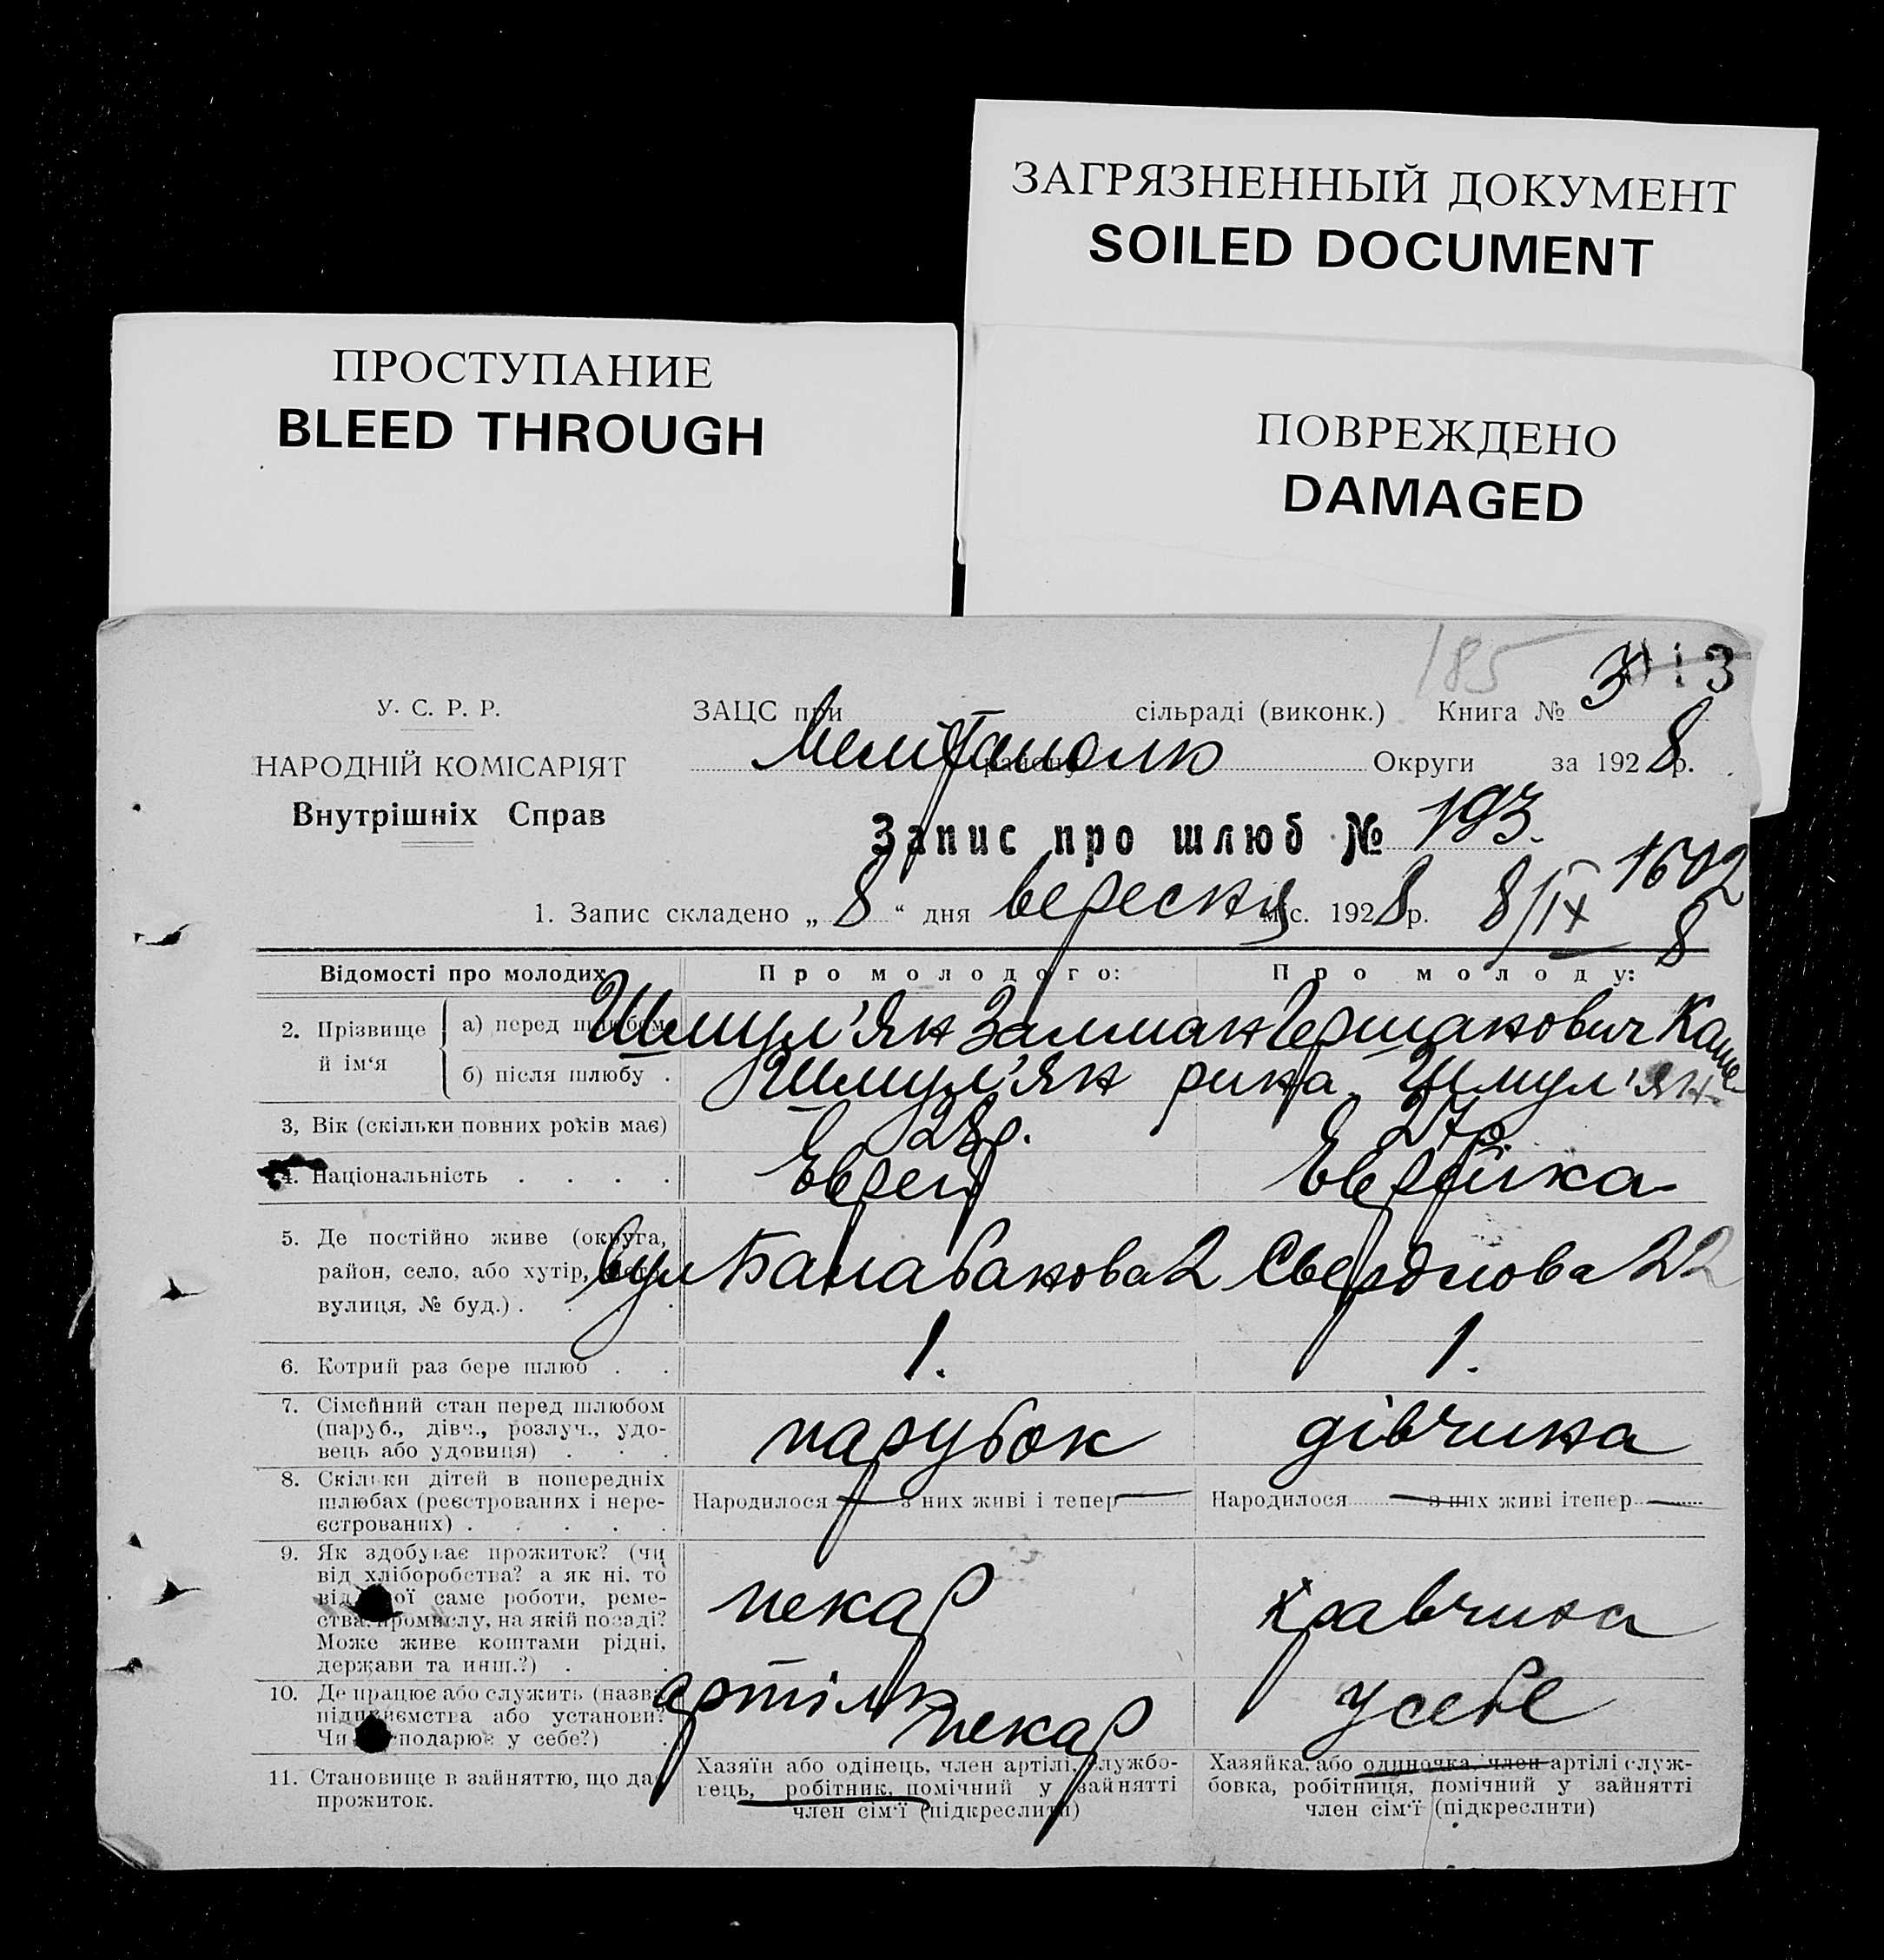 ЗАГРЯЗНЕННЫЙ ДОКУМЕНТ
SOILED DOCUMENT
ПРОСТУПАНИЕ
BLEED THROUGH
ПОВРЕЖДЕНО
DAMAGED
185
3
У. С. Р. Р.
НАРОДНІЙ КОМІСАРІЯТ
Внутрішніх Справ
ЗАЦС при сільраді (виконк.) Книга №
Округи за 1928 р.
Запис про шлюб № 193.
1602
8
1. Запис складено „ 8 “ дня вересня міс. 1928 р. 8/IX
Відомості про молодих Про молодого: Про молоду:
2. Прізвище й ім‘я
а) перед шлюбом Шмул'ян Залман Гершанович
б) після шлюбу . Шмул'ян Шмул'ян
3, Вік (скільки повних років має) 28р. 27р.
4. Національність . . . . Еврей Еврейка
5. Де постійно живе (округа,
район, село, або хутір,
вулиця, № буд.) . . . .
вул Балабанова 2 Свердлова 22
6. Котрий раз бере шлюб . . 1. 1.
7. Сімейний стан перед шлюбом
(паруб., дівч., розлуч., удо-
вець або удовиця) . . .
парубок дівчина
8. Скільки дітей в попередніх
шлюбах (реєстрованих і нере-
єстрованих) . . . . .
Народилося — з них живі і тепер — Народилося — з них живі ітепер —
9. Як здобуває прожиток? (чи
від хліборобства? а як ні, то
від якої саме роботи, реме-
ства, промислу, на якій посаді?
Може живе коштами рідні,
держави та инш.?) . .
пекар кравчиха
10. Де працює або служить (назва
підприємства або установи?
Чи господарює у себе?) .
артіль пекар у себе
11. Становище в зайняттю, що дає
прожиток.
Хазяїн або одінець, член артілі, службо-
вець, робітник, помічний у зайнятті
член сім‘ї (підкреслити)
Хазяйка, або одиночка, член артілі служ-
бовка, робітниця, помічний у зайнятті
член сім‘ї (підкреслити)